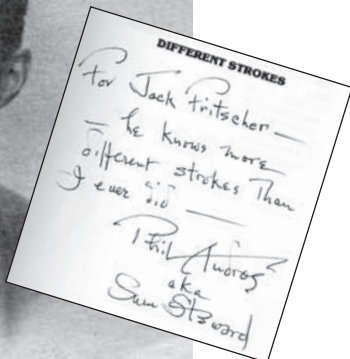 DIFFERENT STROKES
For Jack Fritscher —
— he knows more
different strokes than
I ever did —
Phil Andros
aka
Sam Steward